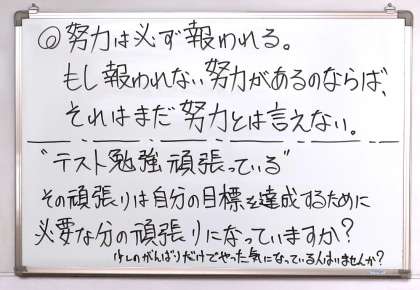 ◎努力は必ず報われる。
もし報われない努力があるのならば、
それはまだ努力とは言えない。
"テスト勉強頑張っている"
その頑張りは自分の目標を達成するために
必要な分の頑張りになっていますか?
少しのがんばりだけでやった気になっている人はいませんか?